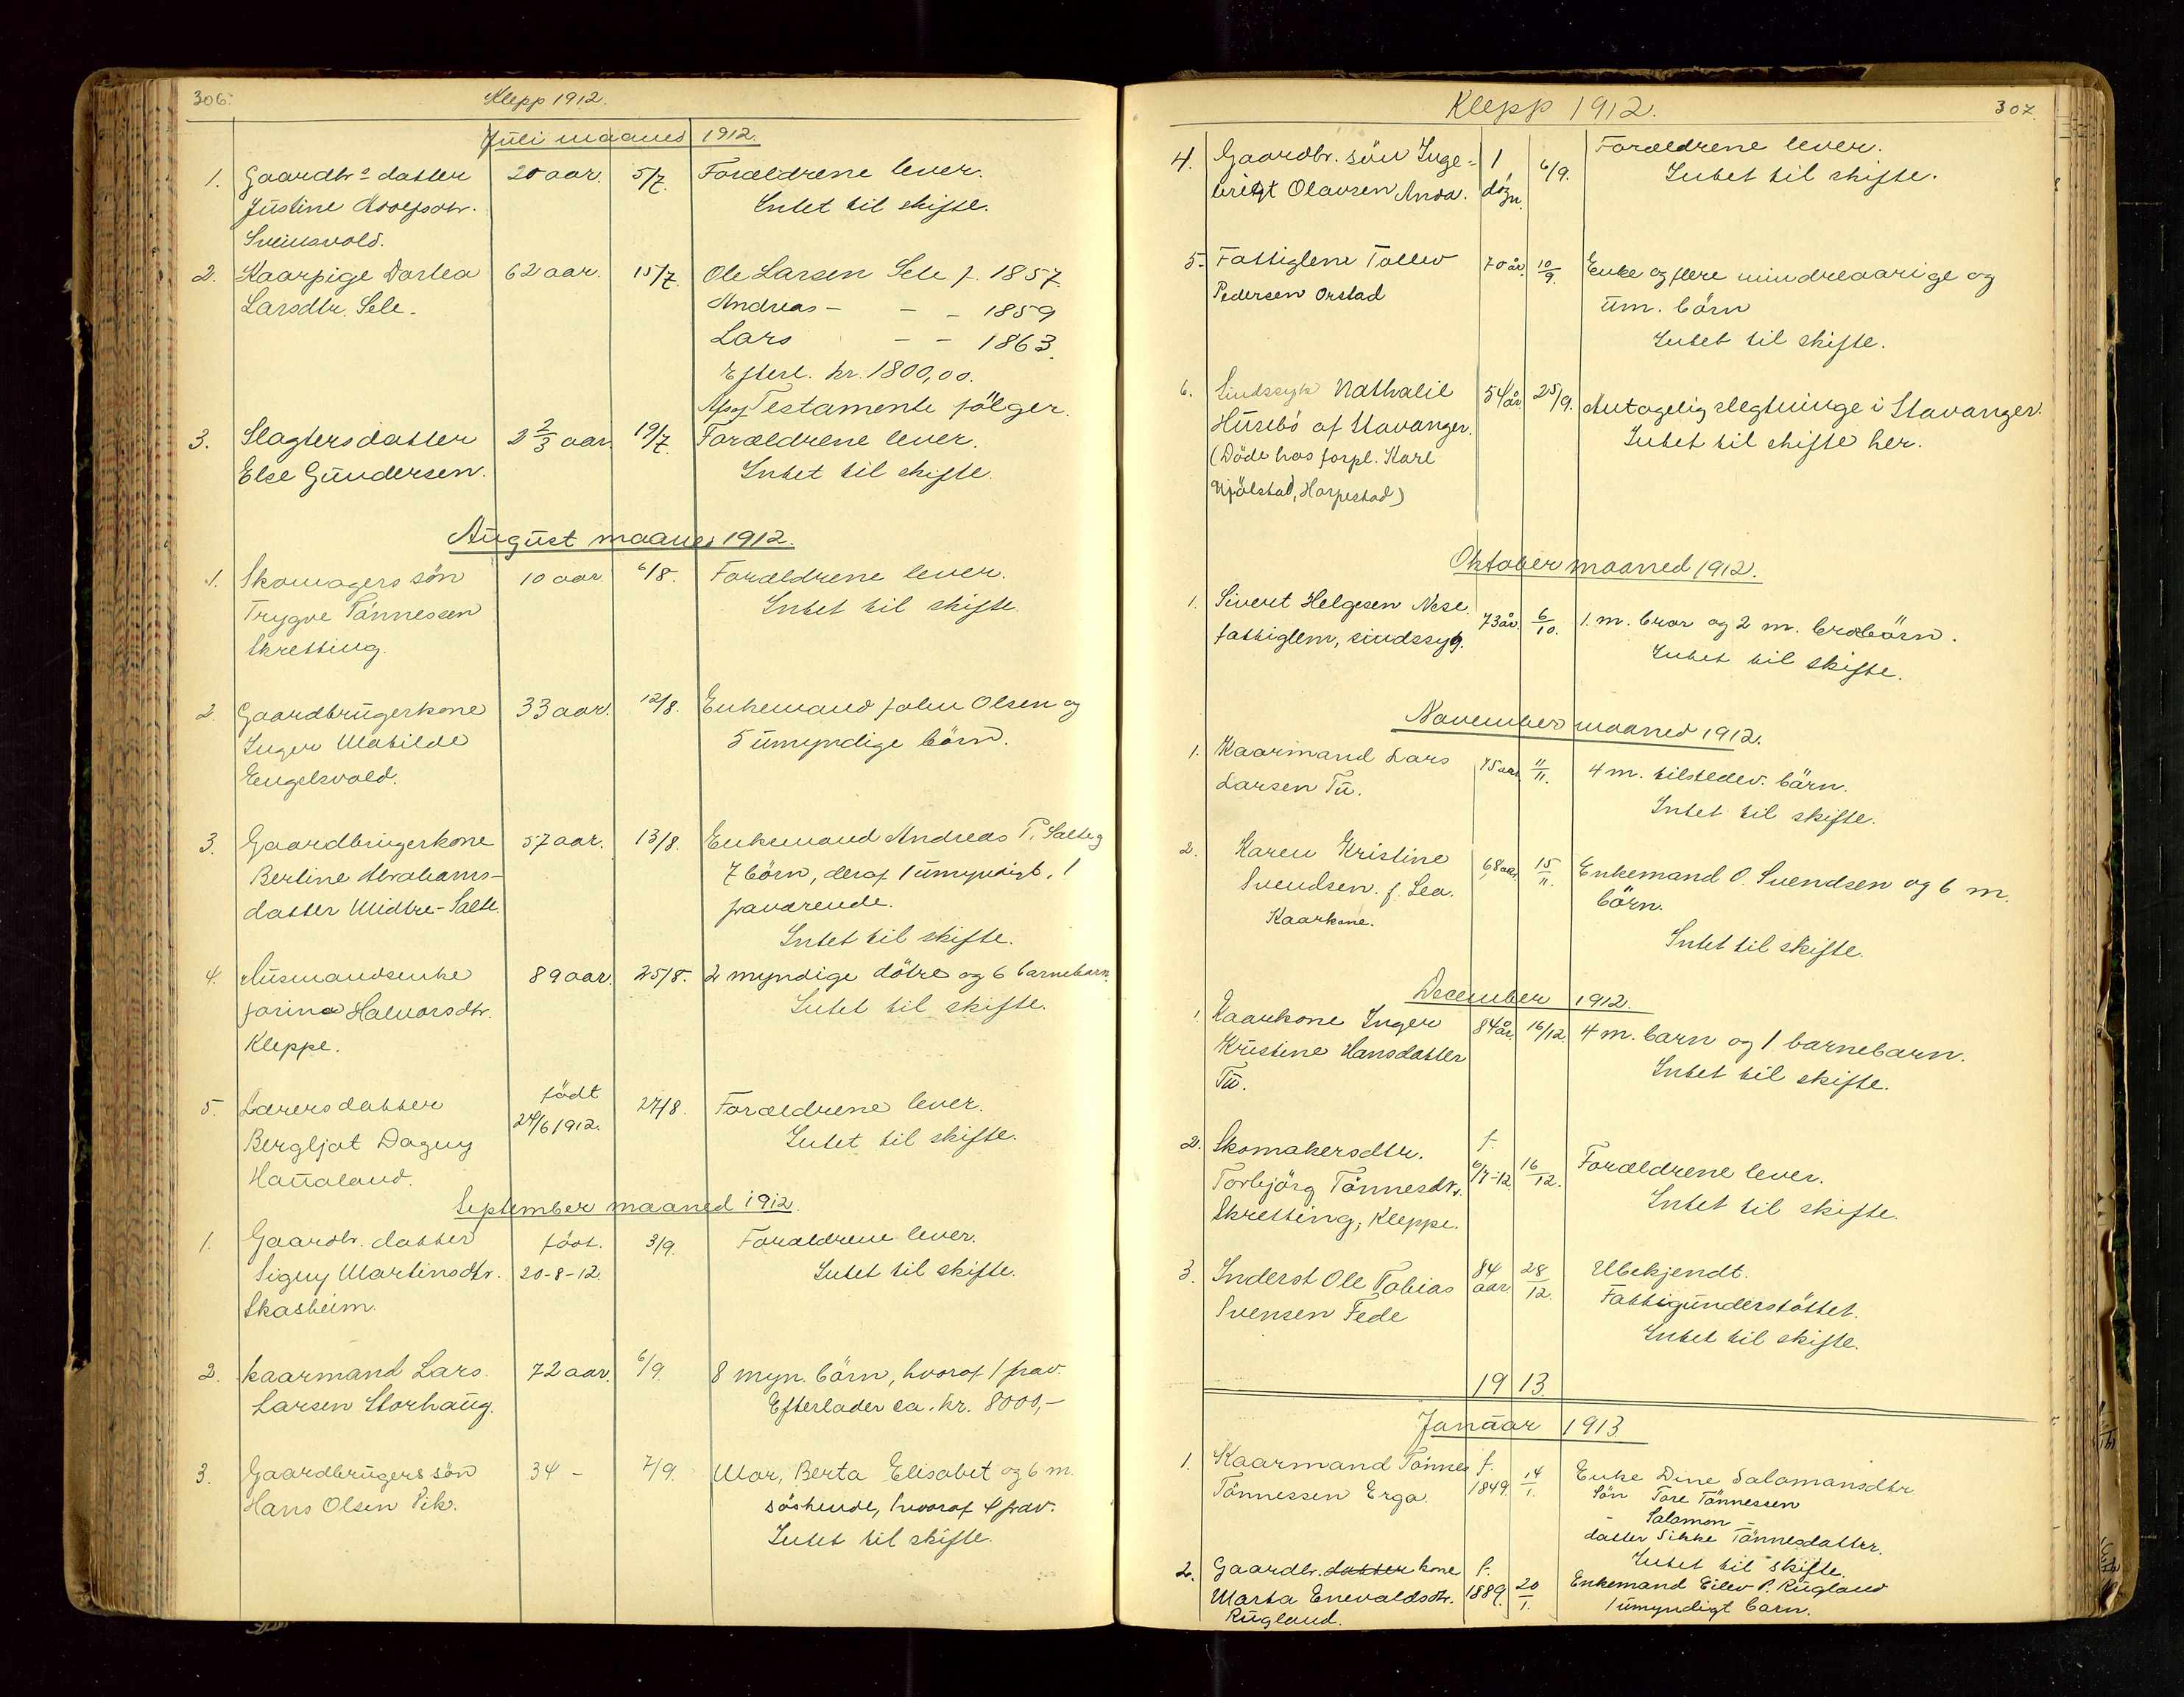 306.
Klepp 1912.
Juli maaned 1912.
1. Gaardbrs datter 20 aar. 5/7. Forældrene lever.
Justine Adolfsdtr. Intet til skifte.
Sveinsvold.
2. Kaarpige Dortea 62 aar. 15/7. Ole Larsen Sele f. 1857
Larsdtr. Sele. Andreas – – – 1859
Lars – – 1863.
Efterl. kr. 1800,00.
Testamente fölger.
3. Slagtersdatter 2 2/3 aar. 19/7. Forældrene lever.
Else Gundersen. Intet til skifte.
August maaned 1912.
1. Skomagers sön 10 aar 6/8. Forældrene lever.
Trygve Tönnessen Intet til skifte.
Skretting.
2. Gaardbrugerkone 33 aar. 12/8. Enkemand John Olsen og
Inger Matilde 5 umyndige börn.
Engelsvold.
3. Gaardbrugerkone 57 aar. 13/8. Enkemand Andreas T. Salte og
Berline Abrahams- 7 börn, deraf 1 umyndigt, 1
datter Midtre-Salte. fraværende.
Intet til skifte.
4. Husmandsenke 89 aar. 25/8. 2 myndige dötre og 6 barnebarn.
Jorina Halvorsdtr. Intet til skifte.
Kleppe.
5. Lærersdatter födt 27/8. Forældrene lever.
Bergljot Dagny 24/6 1912. Intet til skifte.
Haualand.
September maaned 1912.
1. Gaardbr. datter födt. 3/9. Forældrene lever.
Signy Martinsdtr. 20-8-12. Intet til skifte.
Skasheim.
2. Kaarmand Lars 72 aar. 6/9. 8 myn. börn, hvoraf 1 frav.
Larsen Storhaug. Efterlader ca. kr. 8000,–
3. Gaardbrugers sön 34 – 7/9. Mor, Berta Elisabet og 6 m.
Hans Olsen Vik. söskende, hvoraf 4 frav.
Intet til skifte.
Klepp 1912.
307.
4. Gaardbr. sön Inge- 1 6/9. Forældrene lever.
brigt Olavsen Anda. dögn. Intet til skifte.
5. Fattiglem Tollev 70 år. 10/9. Enke og flere mindreaarige og
Pedersen Orstad um. börn
Intet til skifte.
6. Sindssyk Nathalie 54 år. 25/9. Antagelig slegtninge i Stavanger.
Husebö af Stavanger. Intet til skifte her.
(Döde hos forpl. Karl
Njölstad, Horpestad)
Oktober maaned 1912.
1. Sivert Helgesen Nese. 73 år. 6/10. 1. m. bror og 2 m. brobörn.
fattiglem, sindssyg. Intet til skifte.
November maaned 1912.
1. Kaarmand Lars 75 aar. 11/11. 4 m. tilstedev. börn.
Larsen Tu. Intet til skifte.
2. Karen Kristine 68 aar. 15/11. Enkemand O. Svendsen og 6 m.
Svendsen. f. Lea. börn.
Kaarkone. Intet til skifte.
December 1912.
1. Kaarkone Inger 84 år. 16/12. 4 m. barn og 1 barnebarn.
Kristine Hansdatter Intet til skifte.
Tu.
2. Skomakersdtr. f. 16/12. Forældrene lever.
Torbjörg Tönnesdtr. 6/7-12. Intet til skifte.
Skretting, Kleppe.
3. Inderst Ole Tobias 84 aar. 28/12. Ubekjendt.
Svensen Fede Fattigunderstöttet.
Intet til skifte.
1913.
Januar 1913.
1. Kaarmand Tönnes f. 14/1. Enke Dine Salomonsdtr.
Tönnessen Erga. 1849. Sön Tore Tönnessen
– Salomon –
datter Sikke Tönnesdatter.
Intet til skifte.
2. Gaardbr. datter kone f. 20/1. Enkemand Eilev P. Rugland
Marta Enevaldsdtr. 1889. 1 umyndigt barn.
Rugland.